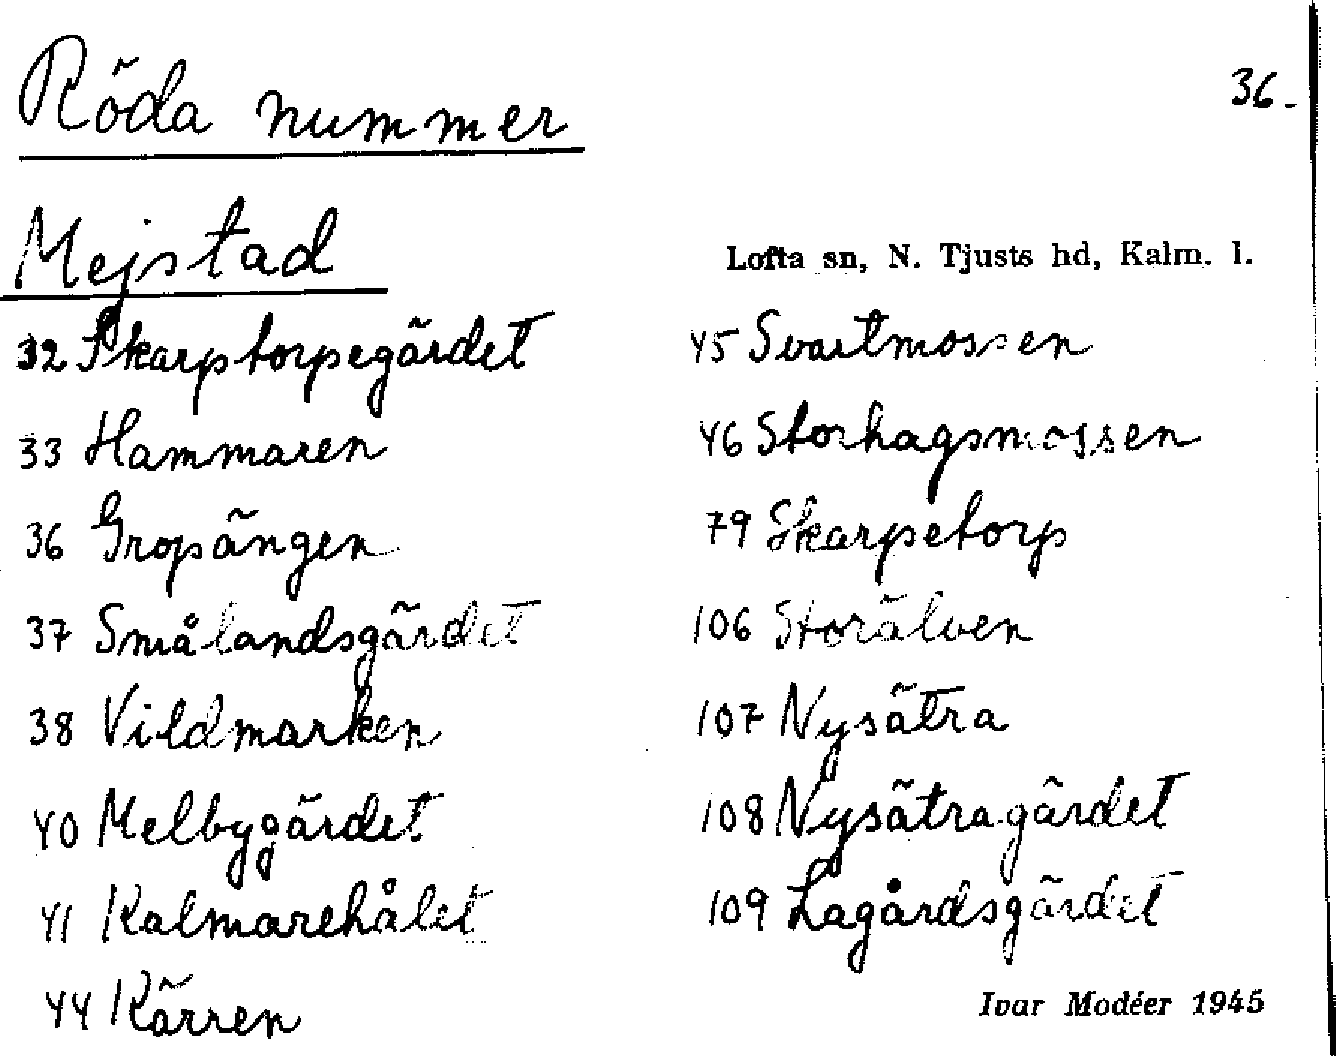 Röda nummer
36.
Mejstad
Lofta sn, N. Tjusts hd, Kalm. l.
32 Skarptorpegärdet
33 Hammaren
36 Gropängen
37 Smålandsgärdet
38 Vildmarken
40 Melbygärdet
41 Kalmarehålet
44 Kärren
45 Svartmossen
46 Storhagsmossen
79 Skarpetorp
106 Storälven
107 Nysätra
108 Nysätragärdet
109 Lagårdsgärdet
Ivar Modéer 1945